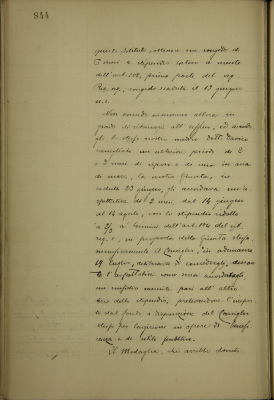 844
questo istituto, ottenne un congedo di
3 mesi a stipendio intero a mente
dell'art. 118, prima parte del reg.
org., congedo scaduto il 13 giugno
u.s.
Non essendo nemmeno allora in
grado di ritornare all'ufficio, ed avendo
lo stesso nostro medico Dott.
consigliato un ulteriore periodo di 2
o 3 mesi di riposo e di cura in aria
di mare, la nostra Giunta, in
seduta 23 giugno, gli accordava un'a-
spettativa di 2 mesi dal 14 giugno
al 14 agosto, con lo stipendio ridotto
a 2/3 a termini dell'art. 120 del cit.
reg. e, in proposta della Giunta stessa
il Consiglio, in adunanza
19 luglio, deliberava di concedergli, duran-
te l'aspettativa come sopra accordatagli,
un sussidio mensile pari all'altro
terzo dello stipendio, prelevandone l'impor-
to dal fondo a disposizione del Consiglio
stesso per erogazioni in opere di benefi-
cenza e di utilità pubblica.
Il Medaglia, che avrebbe dovuto